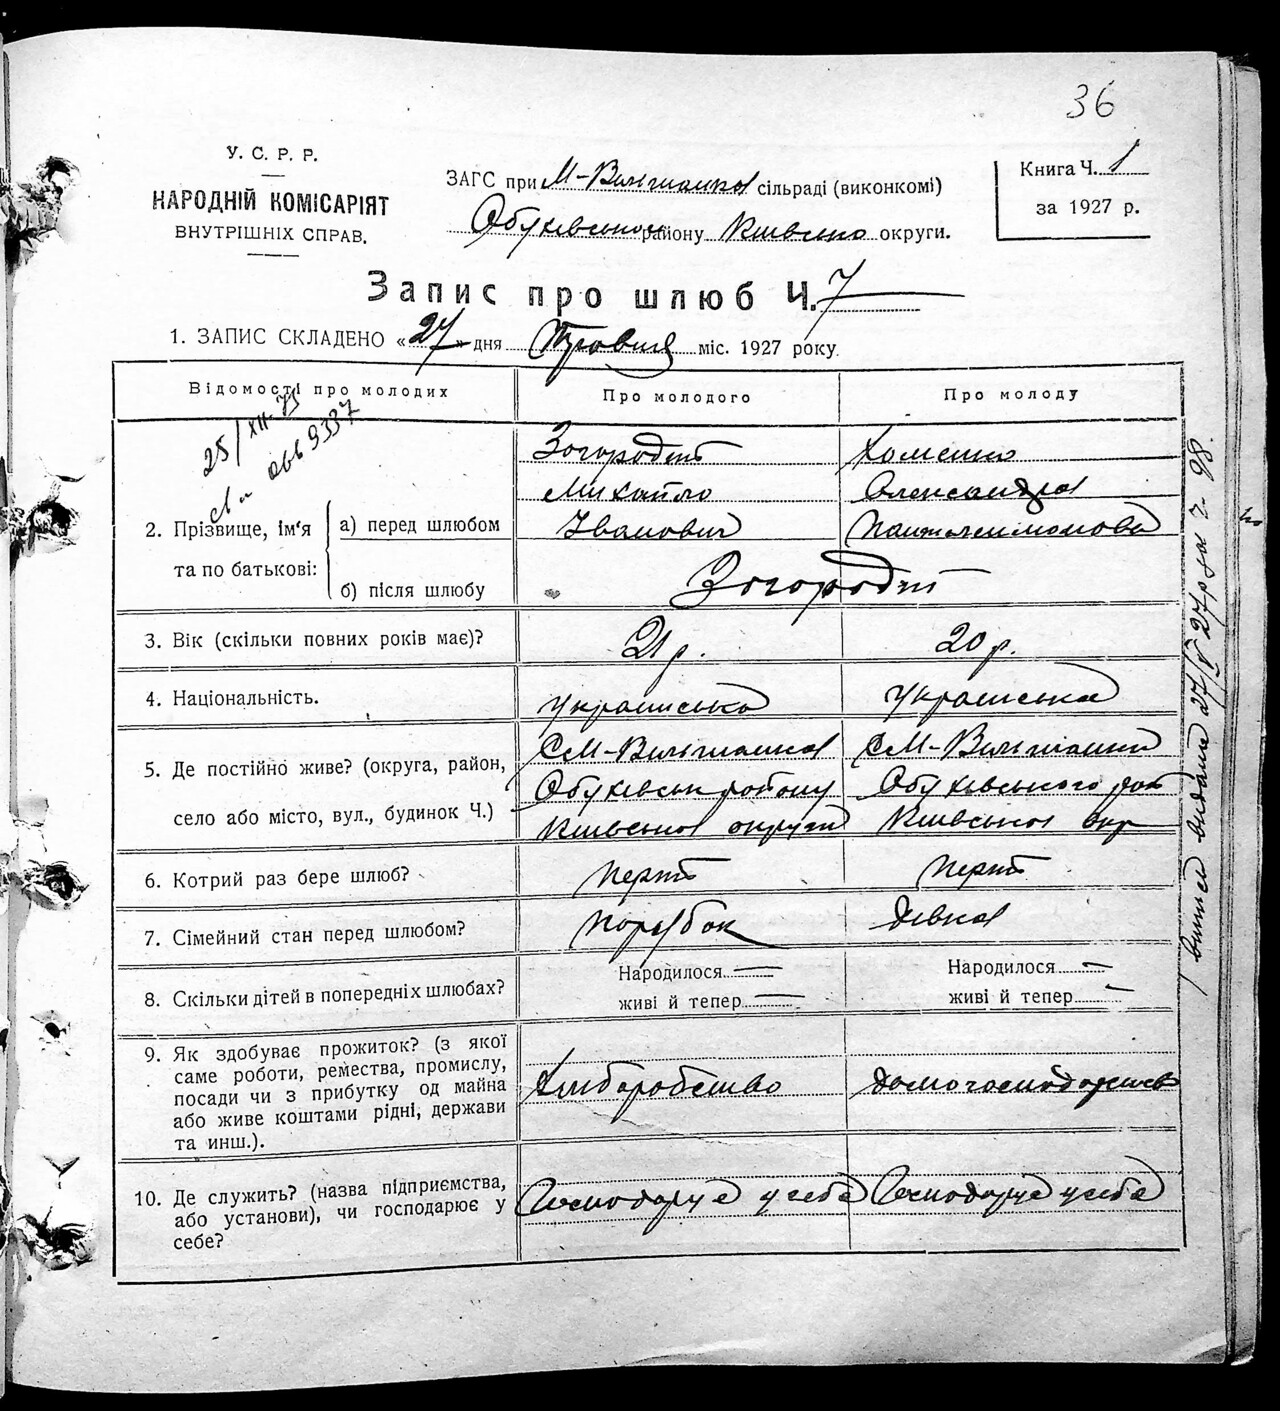 36
У. С. Р. Р.
НАРОДНІЙ КОМІСАРІЯТ
ВНУТРІШНІХ СПРАВ.
ЗАГС при М-Вільшанка сільраді (виконкомі)
Обухівськог району Київсько округи.
Книга Ч. 1
за 1927 р.
Запис про шлюб Ч. 7
1. ЗАПИС СКЛАДЕНО «27» дня Травня міс. 1927 року
Відомості про молодих
Про молодого
Про молоду
25/XII-73
9337
2. Прізвище, ім'я та по батькові:
а) перед шлюбом
Загородній
Михайло
Іванович
Хоменко
Олександра
Пантилимонова
б) після шлюбу
Загородні
3. Вік (скільки повних років має)?
21 р.
20 р.
4. Національність.
українська
українська
5. Де постійно живе? (округа, район,
село або місто, вул., будинок Ч.)
С М-Вільшанка
Обухівськ району
Київської округи
С М-Вільшанки
Обухівського рай
Київської окр
6. Котрий раз бере шлюб?
перший
перший
7. Сімейний стан перед шлюбом?
парубок
дівка
8. Скільки дітей в попередніх шлюбах?
Народилося —
живі й тепер —
Народилося —
живі й тепер —
9. Як здобуває прожиток? (з якої
саме роботи, ремества, промислу,
посади чи з прибутку од майна
або живе коштами рідні, держави
та инш.).
Хліборобство
домогосподарств
10. Де служить? (назва підприємства,
або установи), чи господарює у
себе?
Господарує у себе
Господарує у себе
випис видано 27/V 27р за ч 98.